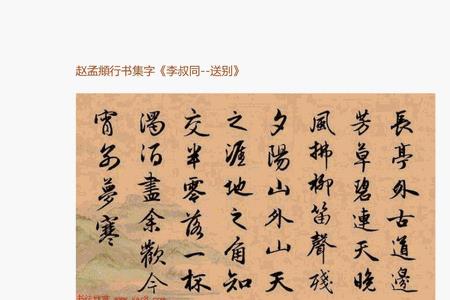 赵孟頫行书集字《李叔同--送别》
長亭外古道邊
芳草碧連天晚
風拂柳笛聲殘
夕陽山外山天
之涯地之角知
交半零落一杯
濁酒盡余歡今
宵別夢寒